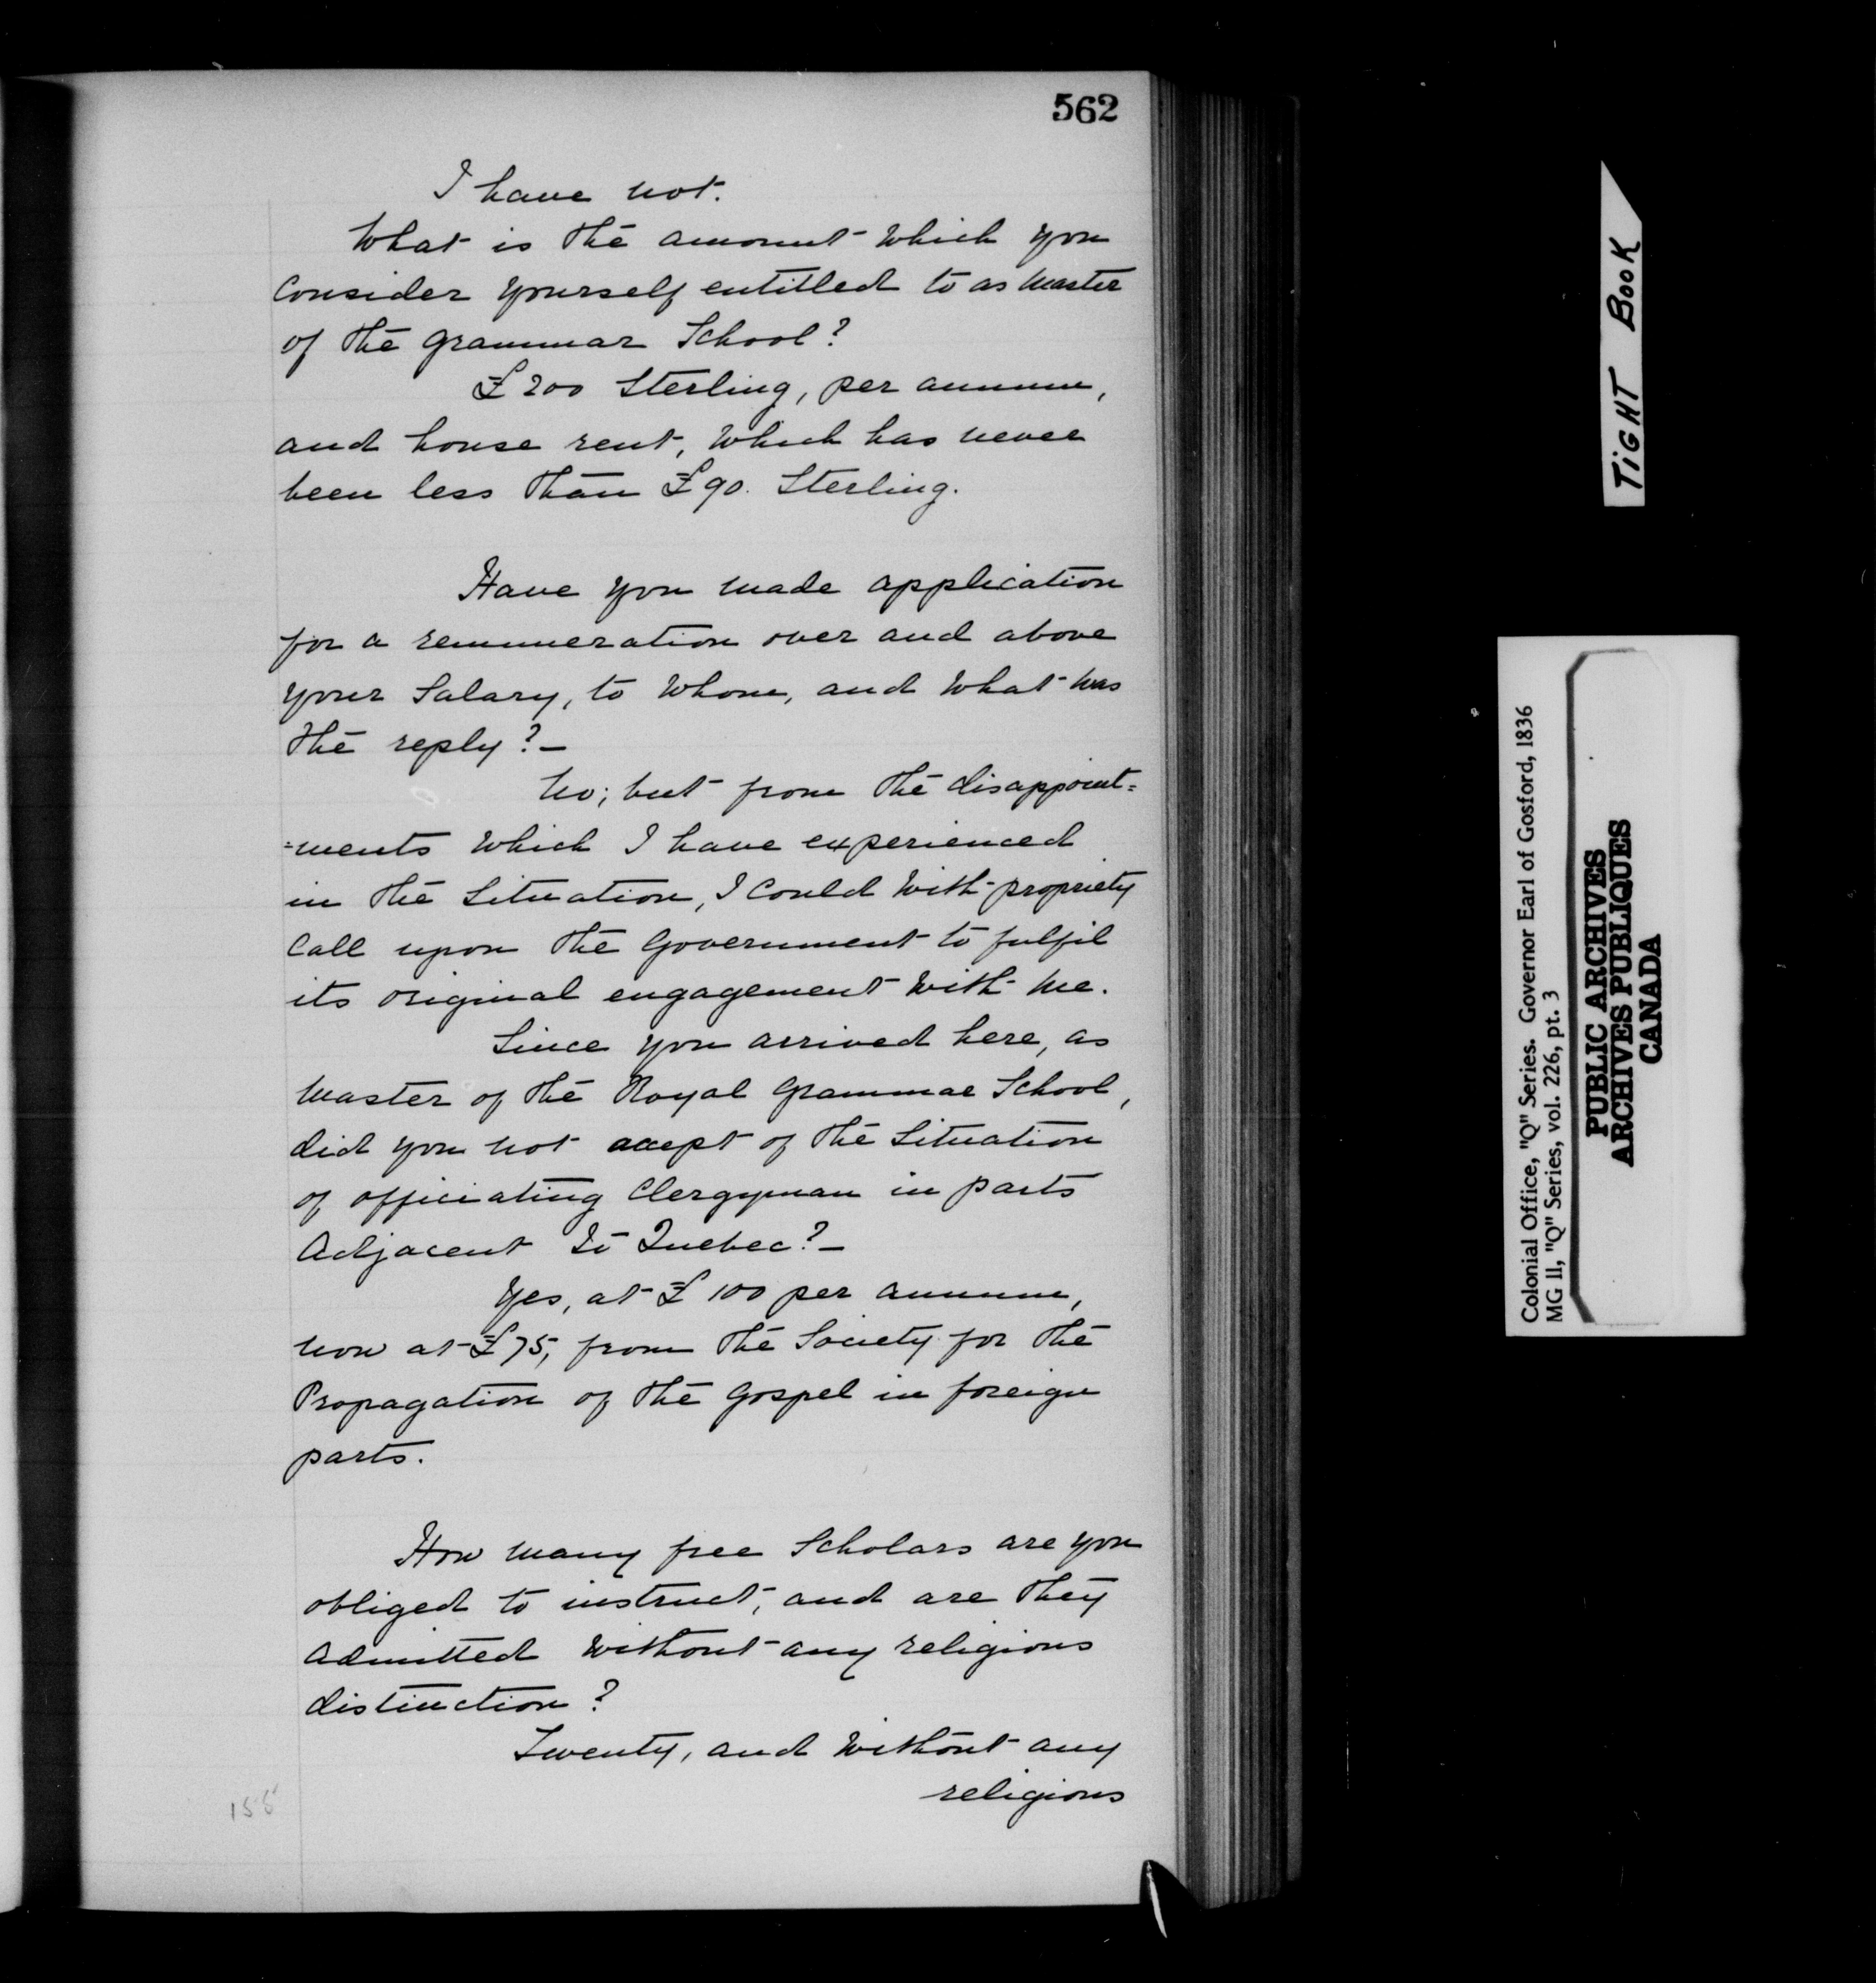 562
I have not.
What is the amount which you
Consider yourself entitled to as Master
of the Grammar School?
£200 Sterling, per annum,
and house rent, which has never
been less than £90. Sterling.
Have you made application
for a remuneration over and above
your Salary, to whom, and what was
the reply?—
No; but from the disappoint=
=ments which I have experienced
in the Situation, I Could with propriety
Call upon the Government to fulfil
its original engagement with me.
Since you arrived here, as
Master of the Royal Grammar School,
did you not accept of the Situation
of officiating Clergyman in parts
Adjacent To Quebec?—
Yes, at £100 per annum,
now at £75, from the Society for the
Propagation of the Gospel in foreign
parts.
How many free Scholars are you
obliged to instruct, and are they
admitted without any religious
distinction?
Twenty, and without any
religious
155
TIGHT BOOK
Colonial Office, "Q" Series. Governor Earl of Gosford, 1836
MG 11, "Q" Series, vol. 226, pt. 3
PUBLIC ARCHIVES
ARCHIVES PUBLIQUES
CANADA